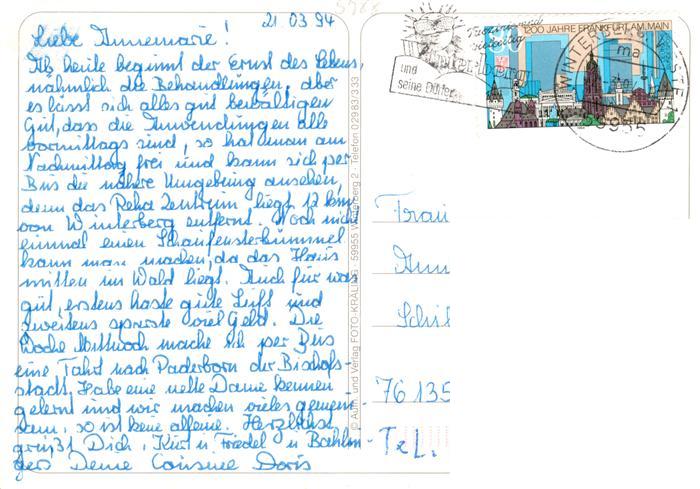 21.03.94
Liebe Annemarie!
Ab heute beginnt der Ernst des Lebens,
nähmlich die Behandlungen, aber
es lässt sich alles gut bewältigen
Gut, dass die Anwendungen alle
vormittags sind, so hat man am
Nachmittag frei und kann sich per
Bus die nähere Umgebung ansehen,
denn das Reha Zentrum liegt 12 km
von Winterberg entfernt. Noch nicht
einmal einen Schaufensterbummel
kann man machen, da das Haus
mitten im Wald liegt. Auch für was
gut, erstens haste gute Luft und
zweitens sparste viel Geld. Die
Woche Mittwoch mache ich per Bus
eine Fahrt nach Paderborn der Bischofs-
stadt. Habe eine nette Dame kennen-
gelernt und wir machen vieles gemein-
sam, so ist keine alleine. Herzlichst
grüßt Dich, Kurt u Friedel u
Deine Cousine Doris
© Aufn. und Verlag FOTO-KRÄLING · 59955 Winterberg 2 · Telefon 02983/333
und
seine Dörfer
80
1200 JAHRE FRANKFURT AM MAIN
WINTERBERG, WESTF
ma
59955
Frau
Ann
Schil
76135